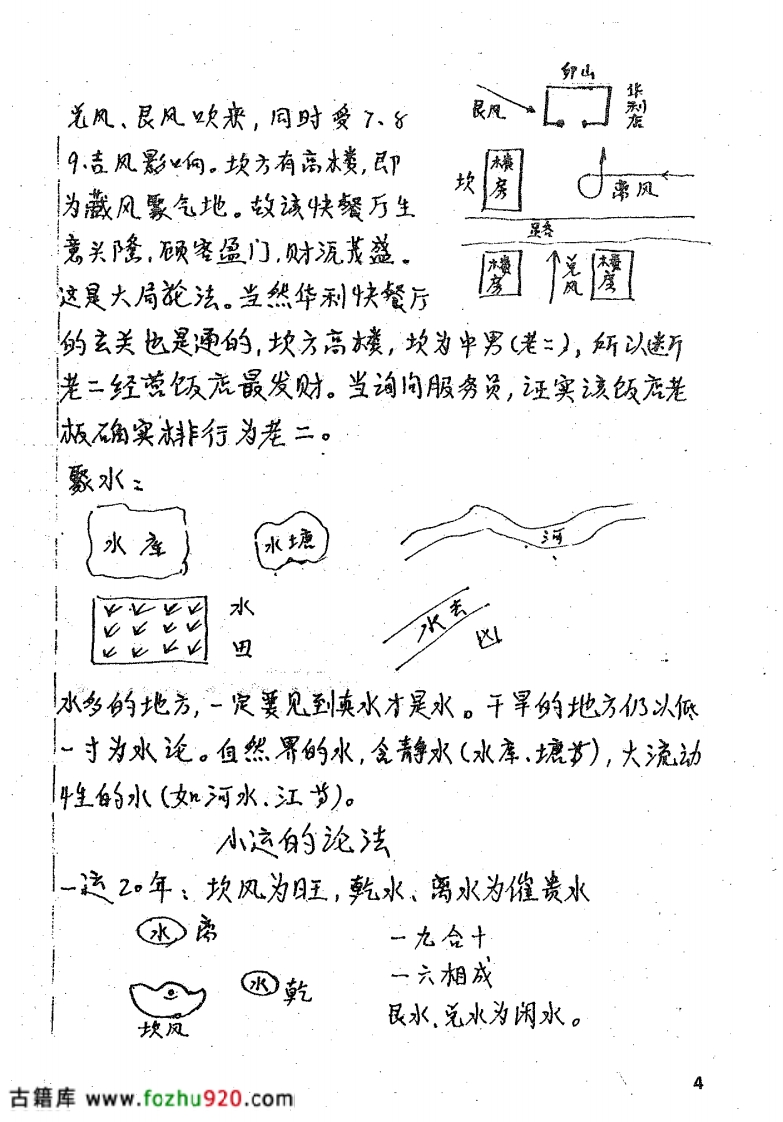 卯山
华利店
艮风
坎
楼房
离风
路
楼房
兑风
楼房
兑风、艮风吹来,同时受7、8
9、吉风影响。坎方有高楼,即
为藏风聚气地。故该快餐厅生
意兴隆,顾客盈门,财源茂盛。
这是大局论法。当然华利快餐厅
的玄关也是通的,坎方高楼,坎为中男(老二),所以断
老二经营饭店最发财。当询问服务员,证实该饭店老
板确实排行为老二。
聚水:
水库
水塘
河
水田
水去
凶
水多的地方,一定要见到真水才是水。干旱的地方仍以低
一寸为水论。自然界的水,含静水(水库、塘等),大流动
性的水(如河水、江等)。
小运的论法
一运20年:坎风为旺,乾水、离水为催贵水
水 离
水 乾
坎风
一九合十
一六相成
艮水、兑水为闲水。
4
古籍库 www.fozhu920.com